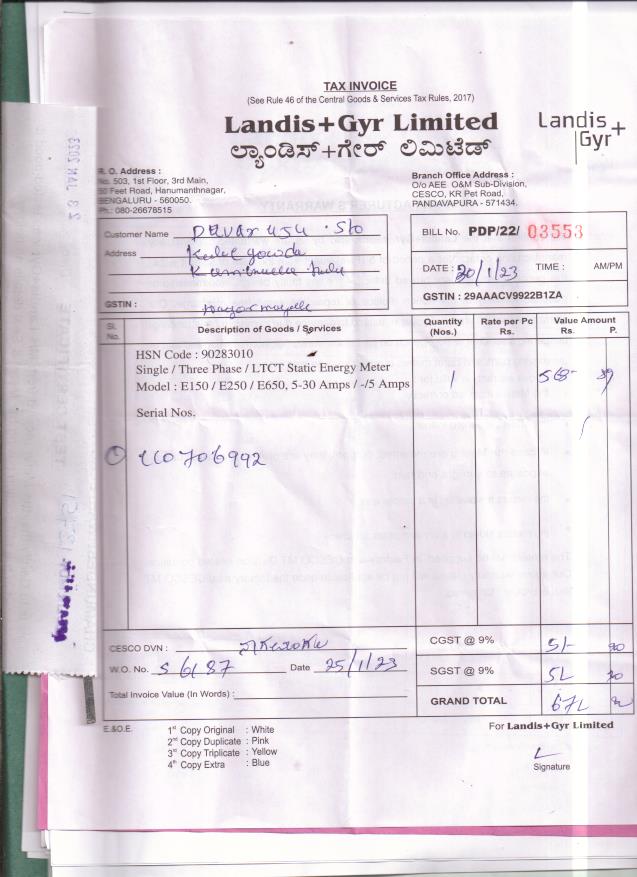 TAX INVOICE
(See Rule 46 of the Central Goods & Services Tax Rules, 2017)
Landis+Gyr Limited
ಲ್ಯಾಂಡಿಸ್+ಗೇರ್ ಲಿಮಿಟೆಡ್
Landis+
Gyr
R. O. Address :
No. 503, 1st Floor, 3rd Main,
50 Feet Road, Hanumanthnagar,
BENGALURU - 560050.
Ph.: 080-26678515
Branch Office Address :
O/o AEE O&M Sub-Division,
CESCO, KR Pet Road,
PANDAVAPURA - 571434.
23 JAN 2023
Customer Name
S/o
Address
gowda
GSTIN :
BILL No. PDP/22/ 03553
DATE : 30/1/23 TIME : AM/PM
GSTIN : 29AAACV9922B1ZA
Sl. No. Description of Goods / Services Quantity (Nos.) Rate per Pc Rs. Value Amount Rs. P.
HSN Code : 90283010
Single / Three Phase / LTCT Static Energy Meter
Model : E150 / E250 / E650, 5-30 Amps / -/5 Amps 1 568-
Serial Nos.
CESCO DVN :
W.O. No. S 6187 Date 25/1/23
Total Invoice Value (In Words) :
CGST @ 9% 51-
SGST @ 9% 51
GRAND TOTAL 671
E.&O.E.
1st Copy Original : White
2nd Copy Duplicate : Pink
3rd Copy Triplicate : Yellow
4th Copy Extra : Blue
For Landis+Gyr Limited
Signature